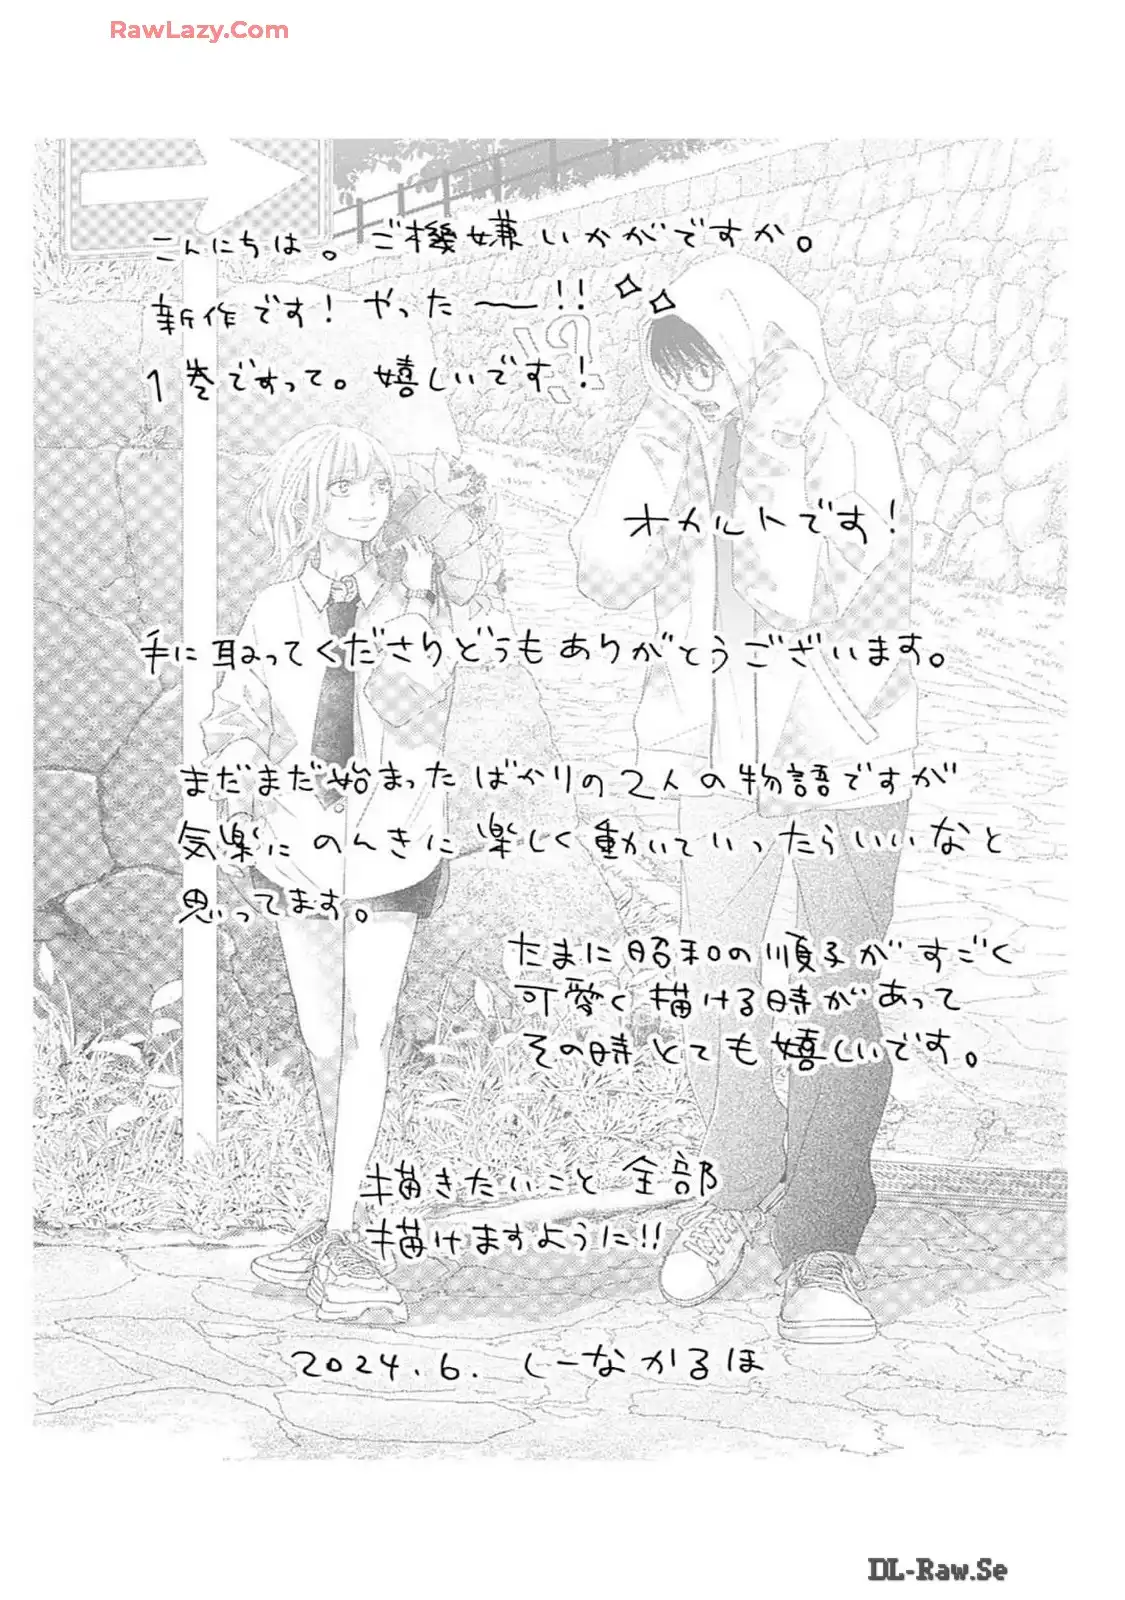 RawLazy.Com
こんにちは。ご機嫌いかがですか。
新作です！やったー！！
1巻ですって。嬉しいです！
オカルトです！
手に取ってくださりどうもありがとうございます。
まだまだ始まったばかりの2人の物語ですが
気楽にのんきに楽しく動いていったらいいなと
思ってます。
たまに昭和の順子がすごく
可愛く描ける時があって
その時とても嬉しいです。
描きたいこと全部
描けますように!!
2024.6. しーなかるほ
DL-Raw.Se